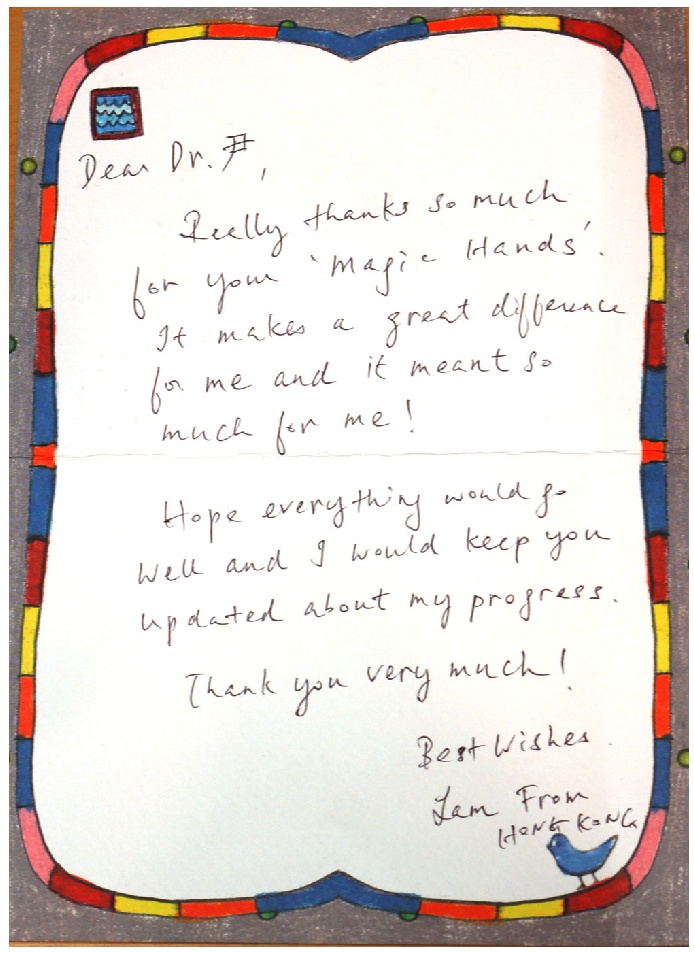 Dear Dr. 尹,
Really thanks so much
for your 'Magic Hands'.
It makes a great difference
for me and it meant so
much for me!
Hope everything would go
well and I would keep you
updated about my progress.
Thank you very much!
Best Wishes.
Lam From
HONG KONG